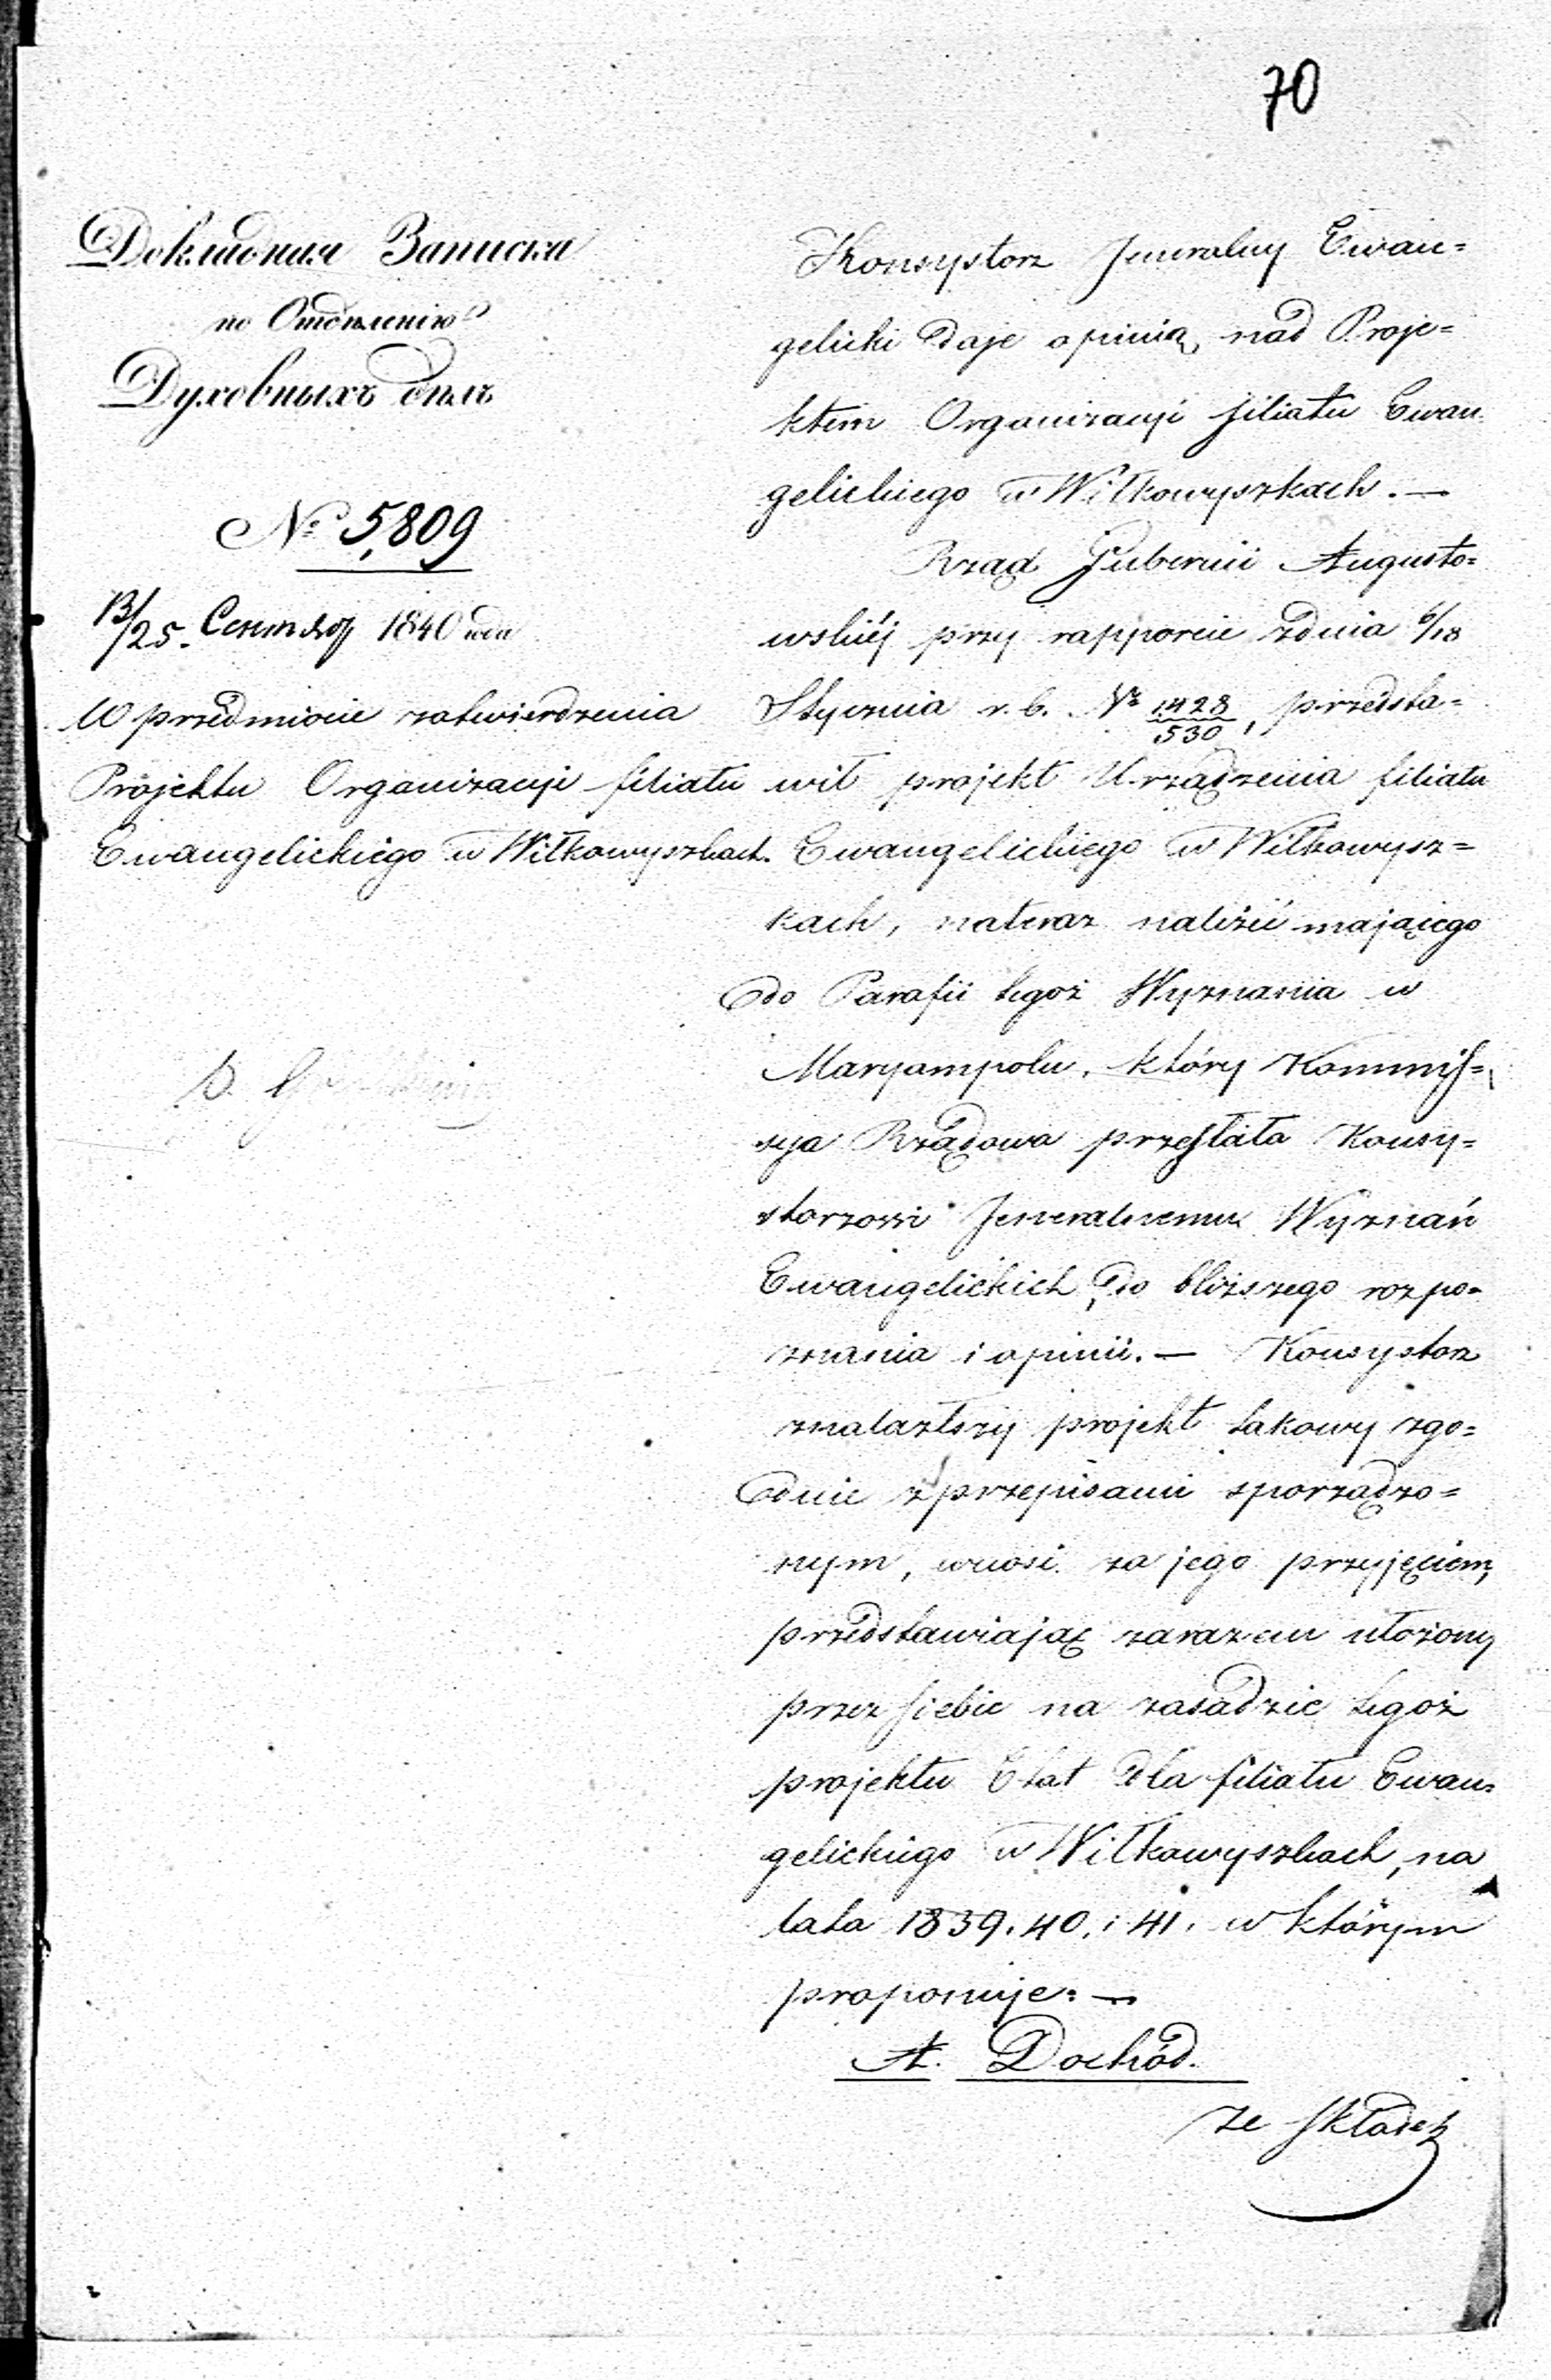 70
Докладная Записка
по Отдѣленію
Духовныхъ дѣлъ
№ 5,809
13/25. Сентября 1840 года
W przedmiocie zatwierdzenia
Projektu Organizacyi filiału
Ewangelickiego w Wiłkowyszkach.
Konsystorz Jeneralny Ewan=
gelicki daje opinią nad Proje=
ktem Organizacyi filiału Ewan
gelickiego w Wiłkowyszkach. —
Rząd Gubernii Augusto=
wskiéj przy rapporcie zdnia 6/18
Stycznia r. b. № 1428/530, przedsta=
wił projekt Urządzenia filiału
Ewangelickiego w Wiłkowysz=
kach, nateraz należić mającego
do Parafii tegoż Wyznania w
Maryampolu, który Kommis=
sya Rządowa przesłała Konsy=
storzowi Jeneralnemu Wyznań
Ewangelickich do bliższego rozpo=
znania i opinii. — Konsystorz
znalazłszy projekt takowy zgo=
dnie z przepisami sporządzo=
nym, wnosi za jego przyjęciem,
przedstawiając zarazem ułożony
przez siebie na zasadzie tegoż
projektu Etat dla filiału Ewan=
gelickiego w Wiłkowyszkach, na
lata 1839. 40. i 41. w którym
proponuje: —
A. Dochód.
ze składek